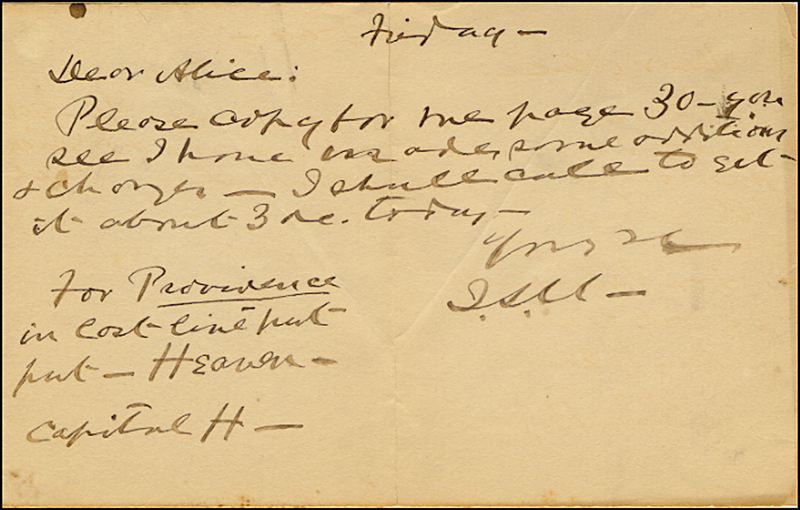 Friday —
Dear Alice:
Please copy for me page 30 — you
see I have made some additions
& changes — I shall call to get
it about 3 oc. today —
For Providence
in last line put
put — Heaven —
Capital H —